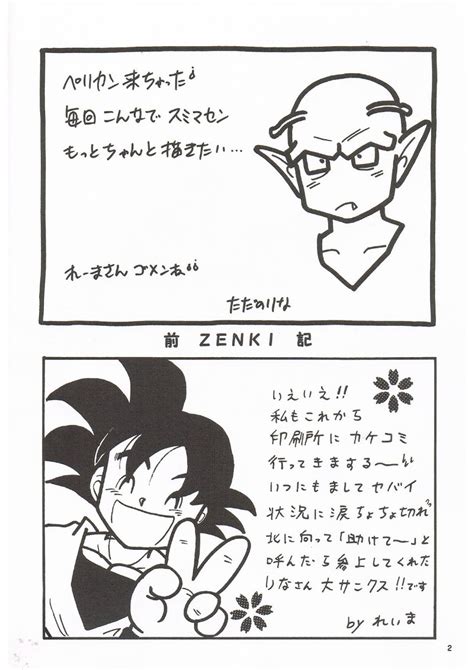 ペリカン来ちゃった
毎回こんなでスミマセン
もっとちゃんと描きたい…
れーまさんゴメンね
ただのりな
前 ZENKI 記
いえいえ!!
私もこれから
印刷所にカケコミ
行ってきまする〜
いつにもましてヤバイ
状況に涙ちょちょ切れ
北に向って「助けて〜」と
呼んだら参上してくれた
りなさん大サンクス!!です
by れいま
2